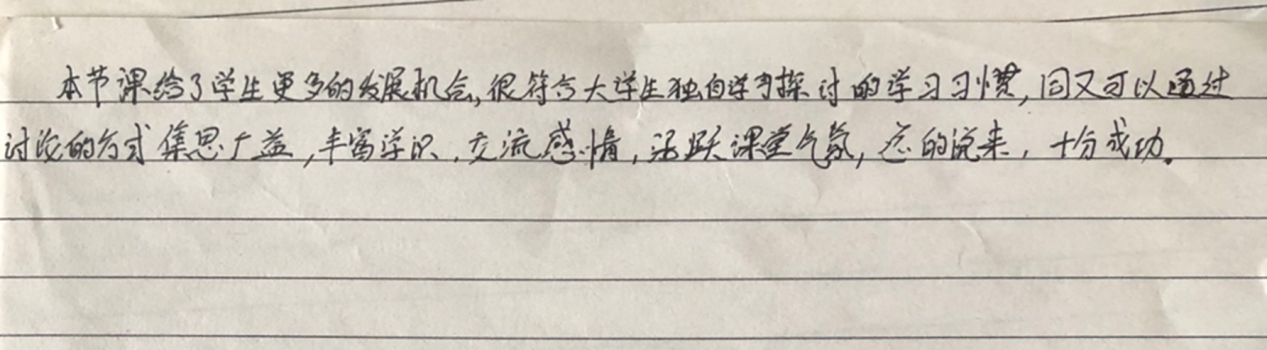 本节课给了学生更多的发展机会,很符合大学生独自学习探讨的学习习惯,同又可以通过
讨论的方式集思广益,丰富学识,交流感情,活跃课堂气氛,总的说来,十分成功。